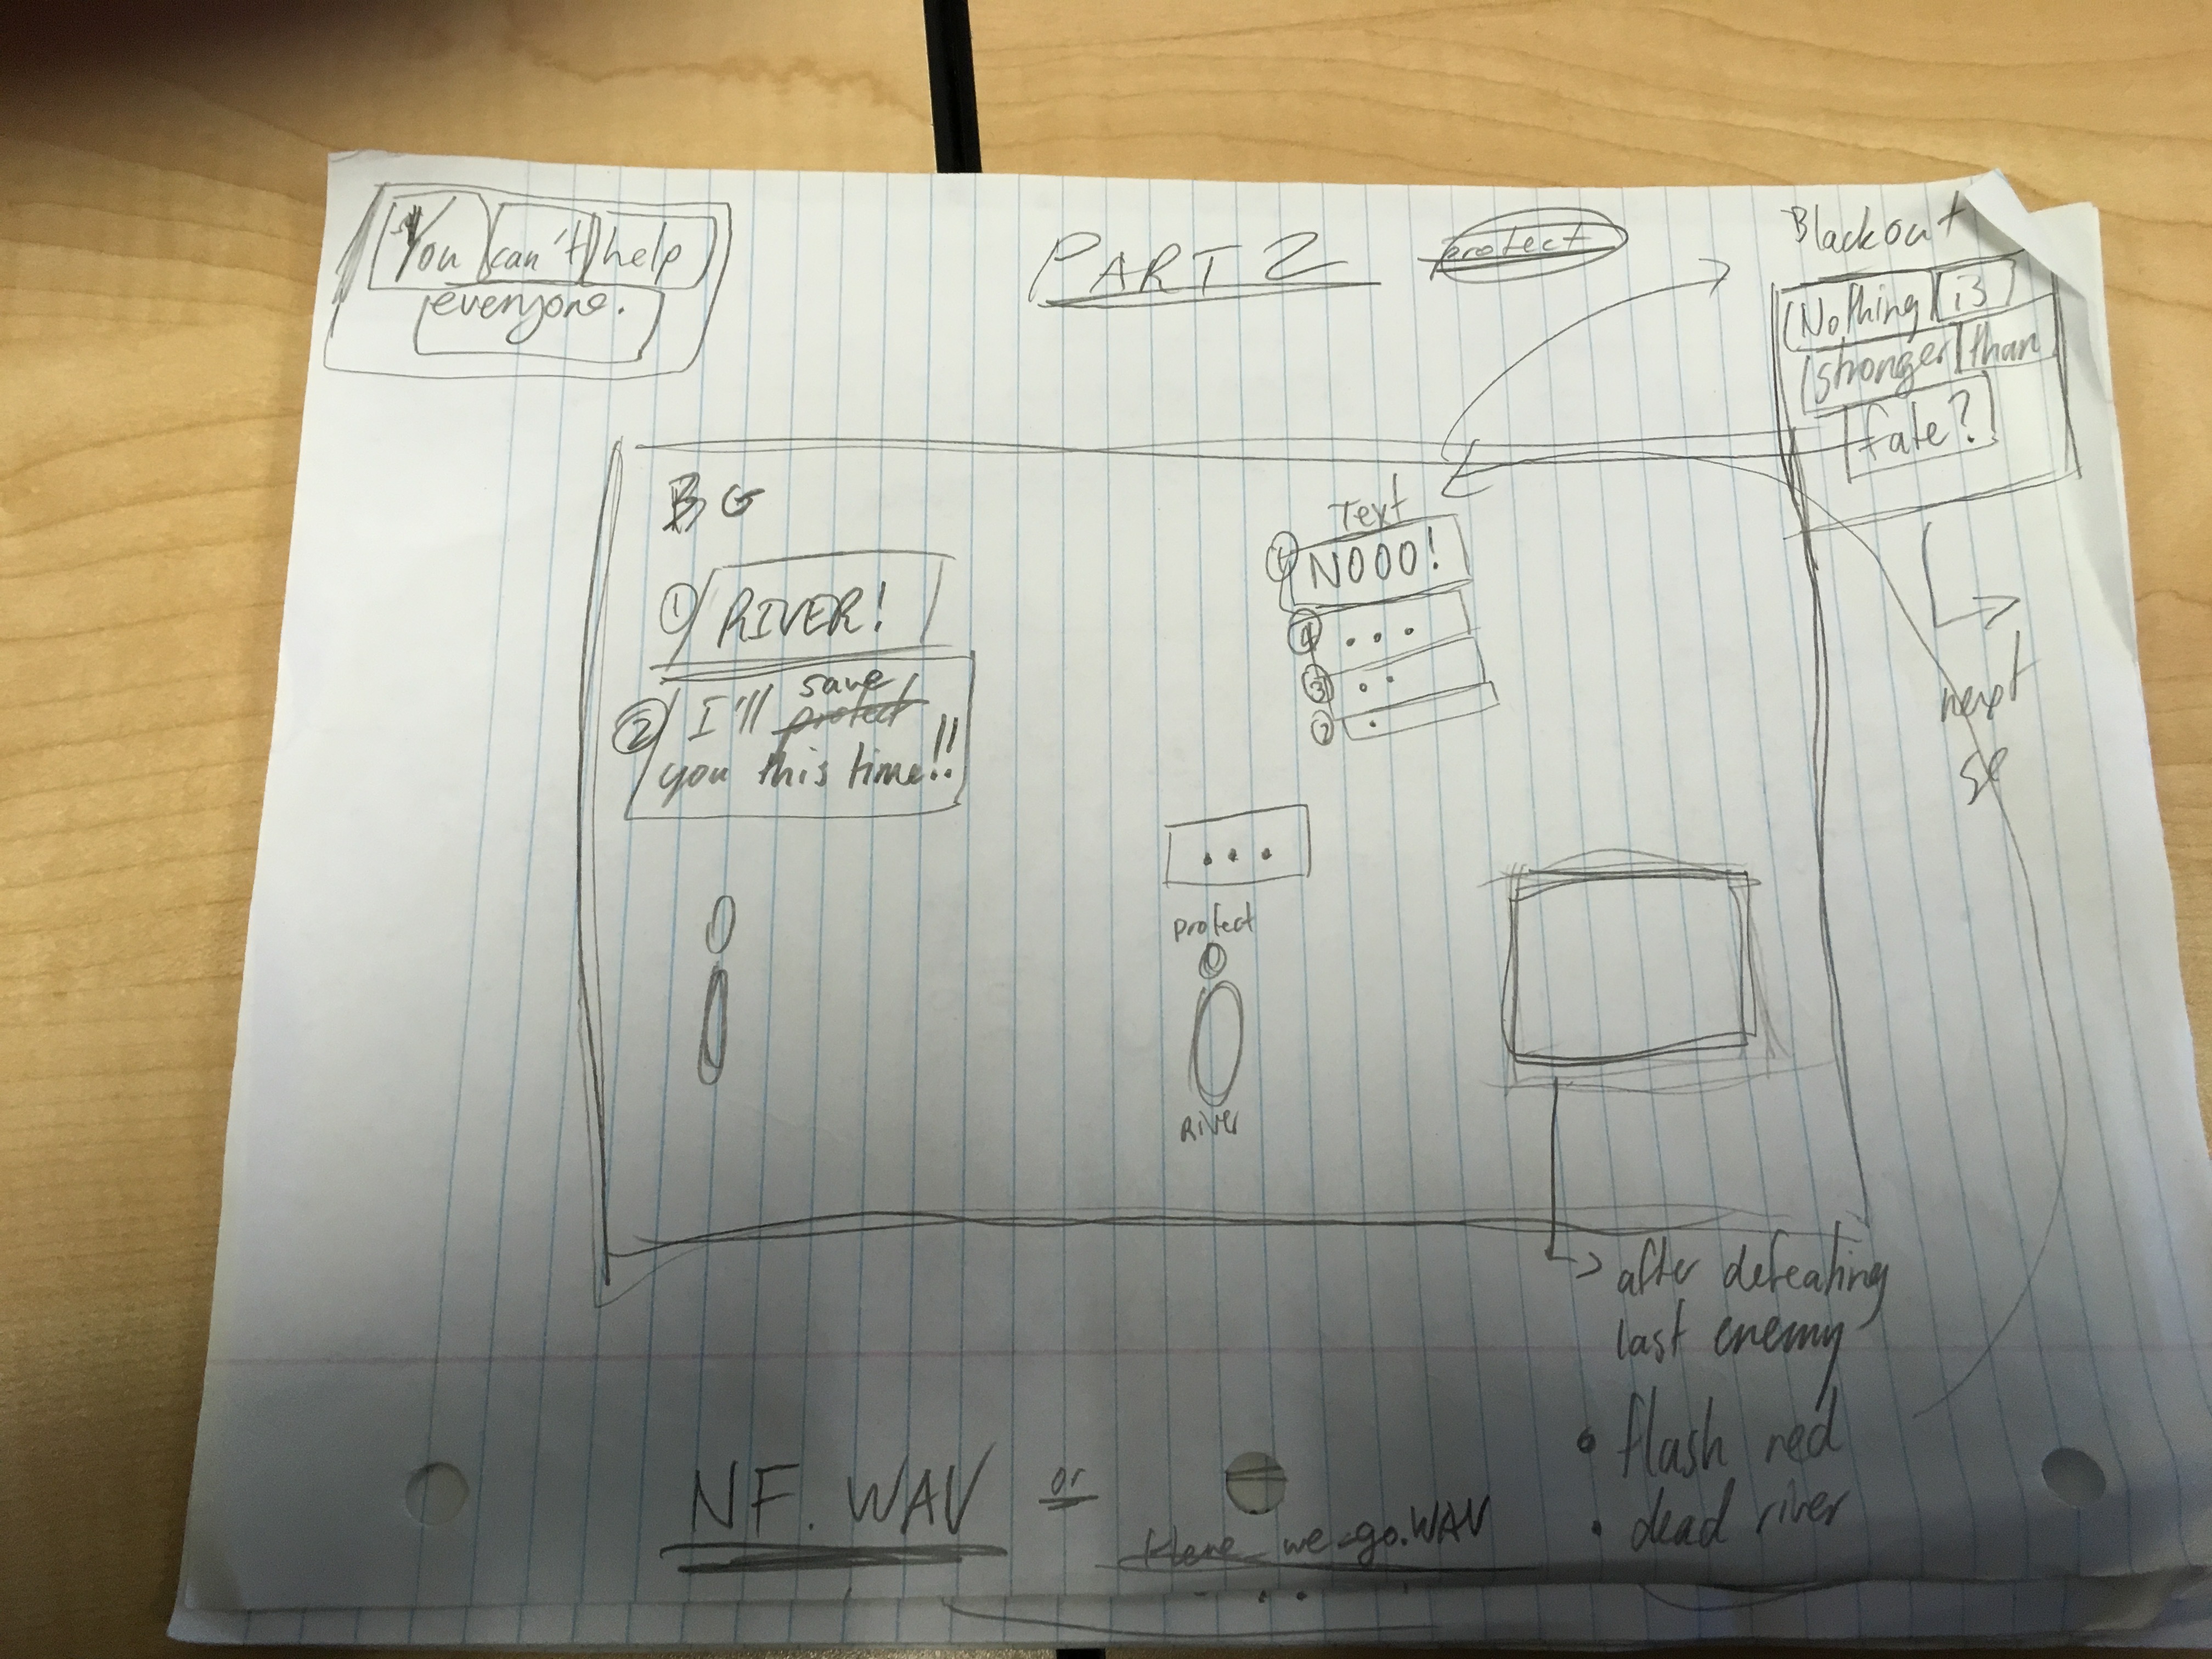 You can't help
everyone.
PART 2
protect
Blackout
Nothing is
stronger than
fate?
BG
① RIVER!
② I'll save protect
you this time!!
Text
NOOO!
④ ...
③ ..
② .
...
protect
River
next
→ after defeating
last enemy
• flash red
• dead river
NF.WAV or
Here_we_go.WAV
...